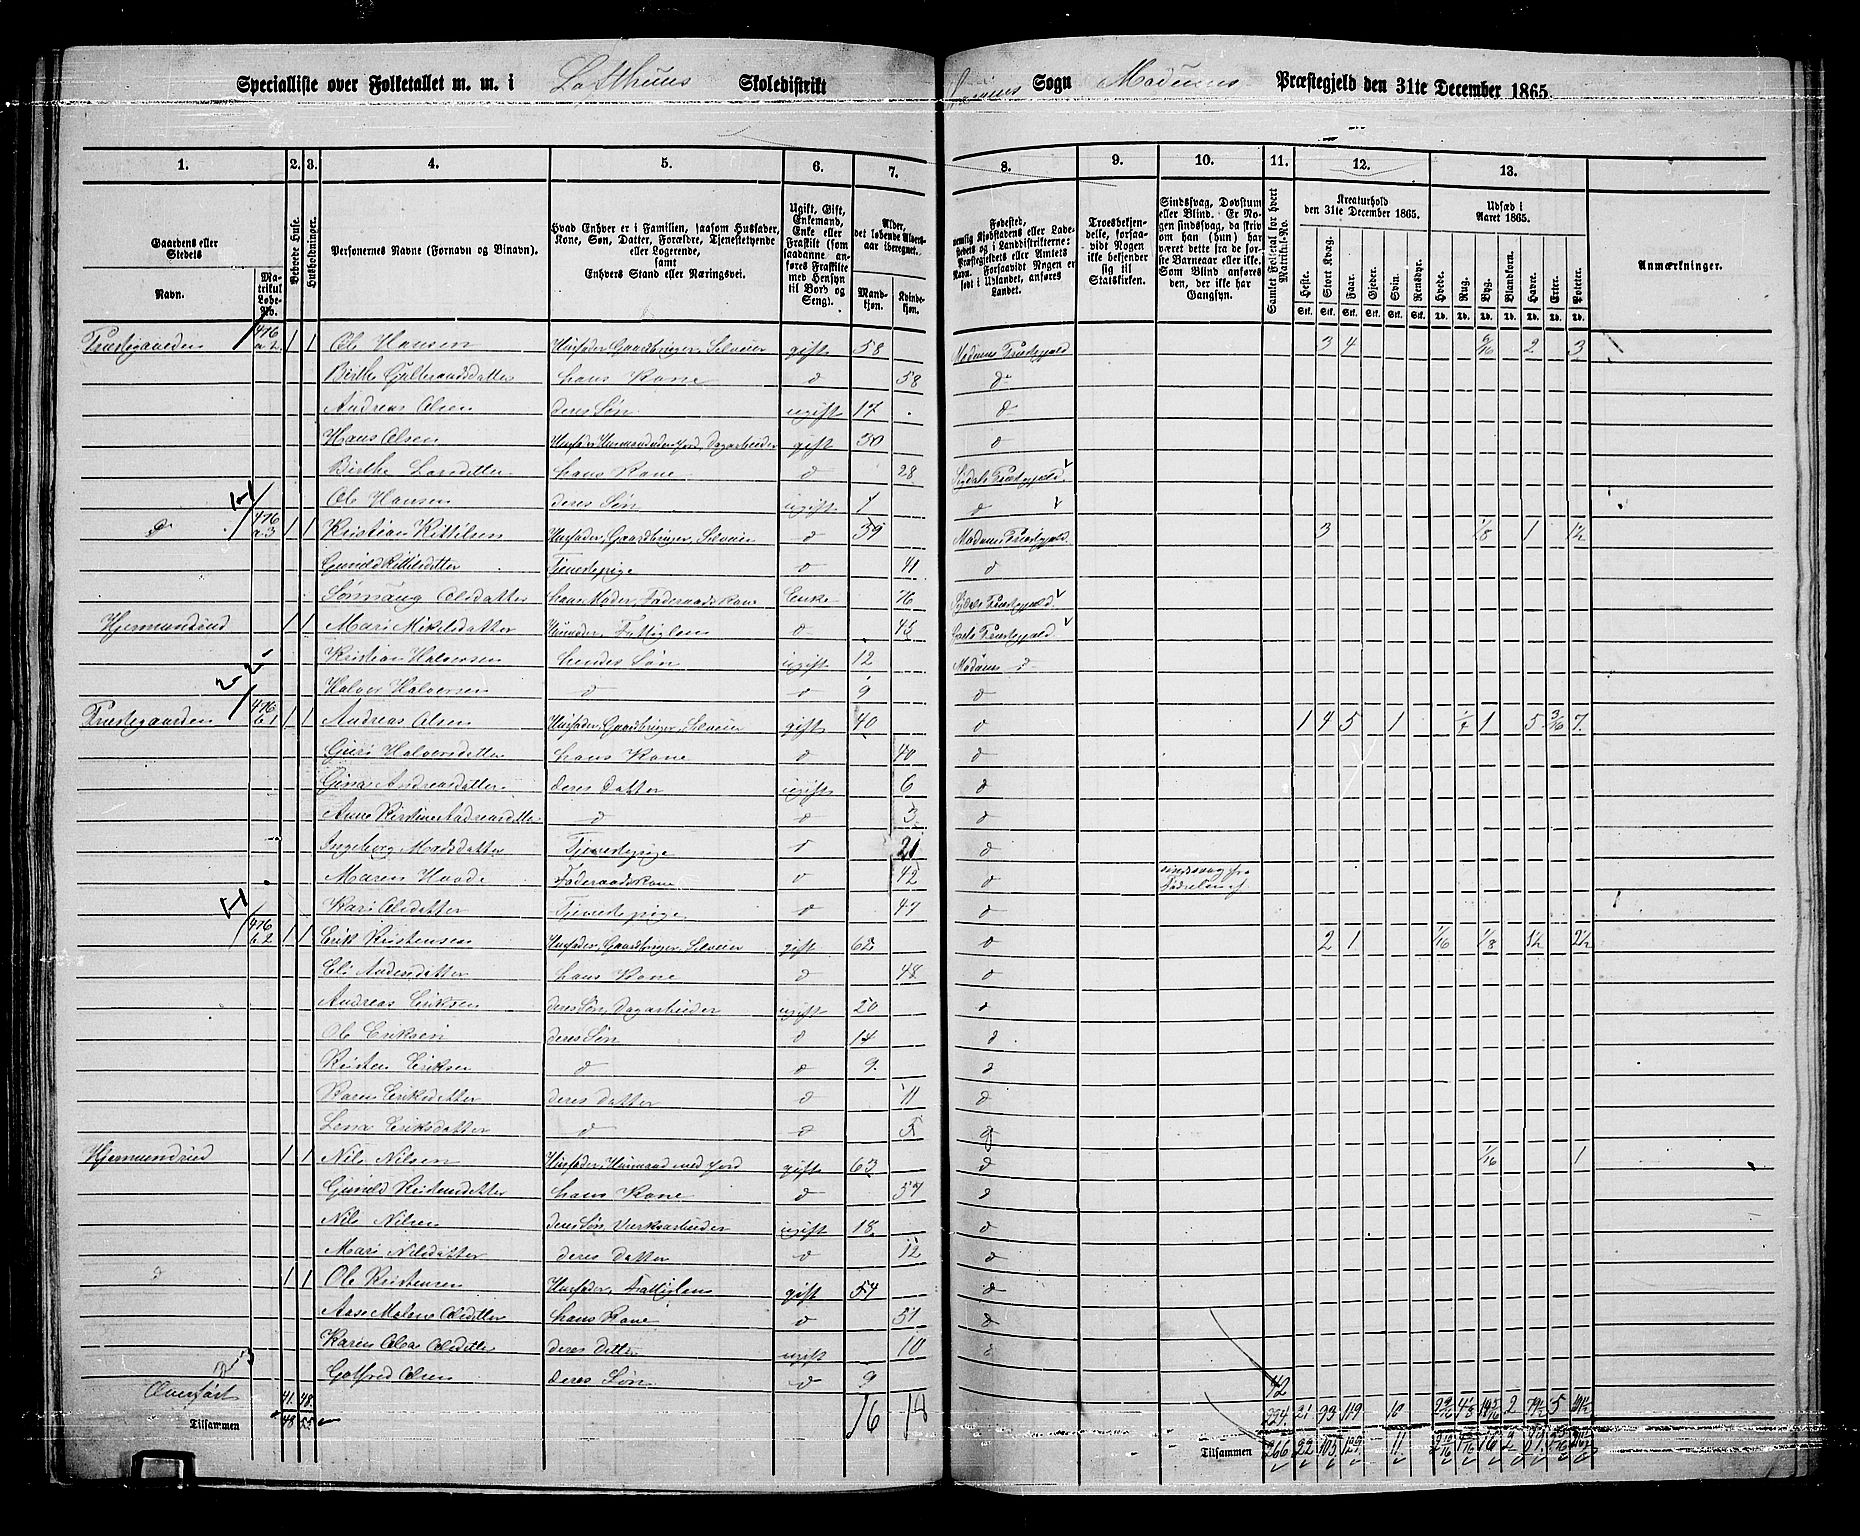 Specialliste over Folketallet m. m. i Skoledistrikt Sogn Modums Præstegjeld den 31te December 1865.
1. 2. 3. 4. 5. 6. 7. 8. 9. 10. 11. 12. 13.
Gaardens eller Stedets
Navn.
Matrikul Løbe-No.
Beboede Huse.
Husholdninger.
Personernes Navne (Fornavn og Binavn).
Hvad Enhver er i Familien, saasom Husfader, Kone, Søn, Datter, Forældre, Tjenestetyende eller Logerende, samt Enhvers Stand eller Næringsvei.
Ugift, Gift, Enkemand, Enke eller Fraskilt (som saadanne anføres Fraskilte med Hensyn til Bord og Seng).
Alder, det løbende Aldersaar iberegnet.
Mandkjøn.
Kvindekjøn.
Fødested, nemlig Kjøbstadens eller Ladestedets eller i Landdistrikterne: Præstegjeldets eller Amtets Navn. Forsaavidt Nogen er født i Udlandet, anføres Landet.
Troesbekjendelse, forsaavidt Nogen ikke bekjender sig til Statskirken.
Sindssvag, Døvstum eller Blind. Er Nogen sindssvag, da skriv om han (hun) har været dette fra de første Barneaar eller ikke. Som Blind anføres den, der ikke har Gangsyn.
Samlet Folketal for hvert Matrikul-No.
Kreaturhold den 31te December 1865.
Heste. Stort Kvæg. Faar. Gjeder. Svin. Rensdyr.
Stk. Stk. Stk. Stk. Stk. Stk.
Udsæd i Aaret 1865.
Hvede. Rug. Byg. Blandkorn. Havre. Erter. Poteter.
Td. Td. Td. Td. Td. Td. Td.
Anmærkninger.
Præstegaarden 476 a2 1 1 Ole Hansen Husfader, Gaardbruger, Selveier gift 58 Modums Præstegjeld 3 4 2 3
hans Kone d 58 d
Andreas Olsen deres Søn ugift 17 d
Hans Olsen gift 30 d
Birthe hans Kone d 28 Sigdals Præstegjeld
Ole Hansen deres Søn ugift 1 d
d 476 a3 1 1 Kristian Kittilsen Husfader, Gaardbruger, Selveier d 39 Modums Præstegjeld 3 1/8 1 1½
Gunild Kittilsdatter Tjenestepige d 41 d
Olsdatter hans Moder, Føderaadskone Enke 76 Sigdals Præstegjeld
Hjermundrud 1 1 Mari Mikelsdatter Husmoder, Fattiglem d 45 Præstegjeld
Kristian Halvorsen hendes Søn ugift 12 Modums d
Halvor Halvorsen d d 9 d
Præstegaarden 476 b1 1 1 Andreas Olsen Husfader, Gaardbruger, Selveier gift 40 d 1 4 5 1 1 5 3/16 7
Guri Halvorsdatter hans Kone d 40 d
Gina Andreasdatter deres Datter ugift 6 d
Anne Kirstine Andreasdatter d d 3 d
Ingeborg Madsdatter Tjenestepige d 21 d
Maren Føderaadskone d 42 d sindssvag fra Fødselen af
Kari Olsdatter Tjenestepige d 47 d
476 b2 1 1 Erik Kristensen Husfader, Gaardbruger, Selveier gift 62 d 2 1 1/16 1/8 1½ 2½
Eli Andersdatter hans Kone d 48 d
Andreas Eriksen deres Søn, Dagarbeider ugift 20 d
Ole Eriksen deres Søn d 14 d
Kristen Eriksen d d 9 d
Karen Eriksdatter deres Datter d 11 d
Lena Eriksdatter d d 5 d
Hjermundrud 1 1 Nils Nilsen Husfader, Husmand med Jord gift 63 d 1/16 1
Gunild Kristensdatter hans Kone d 57 d
Nils Nilsen deres Søn, Værksarbeider ugift 18 d
Mari Nilsdatter deres Datter d 12 d
d 1 1 Ole Kristensen Husfader, Fattiglem gift 54 d
Aase Malene Olsdatter hans Kone d 51 d
Karen Olava Olsdatter deres Datter ugift 10 d
Gotfred Olsen deres Søn d 9
42
Overført 41 48 16 18 224 21 93 119 10 2
Tilsammen 48 55 Tilsammen 266 22 105 129 11 16 2